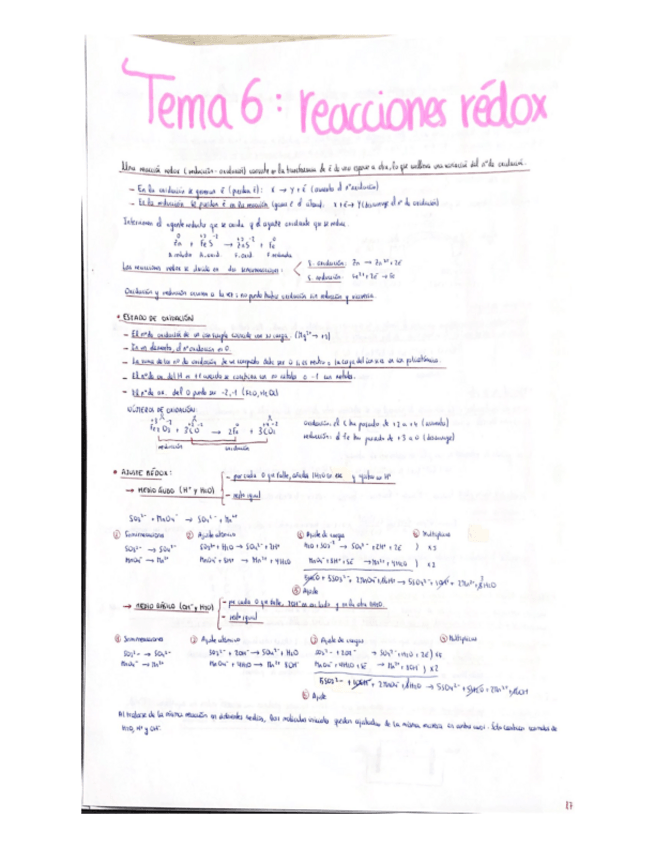 Tema 6: reacciones rédox
Una reacción redox (reducción-oxidación) consiste en la transferencia de é de una especie a otra, lo que conlleva una variación del nº de oxidación.
- En la oxidación se generan é (pierden é): X → Y + é (aumenta el nº oxidación)
- En la reducción se pierden é en la reacción (gana é el átomo): X + é → Y (disminuye el nº de oxidación)
Intervienen el agente reductor que se oxida y el agente oxidante que se reduce.
0 +2 -2 +2 -2 0
Zn + FeS → ZnS + Fe
Las reacciones redox se dividen en dos semirreacciones:
S. oxidación: Zn → Zn²⁺ + 2é
S. reducción: Fe²⁺ + 2é → Fe
Oxidación y reducción ocurren a la vez; no puede haber oxidación sin reducción y viceversa.
• ESTADO DE OXIDACIÓN
- El nº de oxidación de un ion simple coincide con su carga. (Mg²⁺ → +2)
- En un elemento, el nº oxidación es 0.
- La suma de los nº de oxidación de un compuesto debe ser 0 si es neutro o la carga del ion si es un ion poliatómico.
- El nº de ox. del H es +1 cuando se combina con no metales o -1 con metales.
- El nº de ox. del O puede ser -2, -1 (H₂O, H₂O₂)
NÚMEROS DE OXIDACIÓN:
Fe₂O₃ + 3CO → 2Fe + 3CO₂
reducción oxidación
oxidación: el C ha pasado de +2 a +4 (aumenta)
reducción: el Fe ha pasado de +3 a 0 (disminuye)
• AJUSTE RÉDOX:
→ MEDIO ÁCIDO (H⁺ y H₂O)
- por cada O que falte, añado 1H₂O en ese y ajusto los H⁺
- resto igual
SO₃²⁻ + MnO₄⁻ → SO₄²⁻ + Mn²⁺
① Semirreacciones ② Ajuste atómico ③ Ajuste de cargas ④ Multiplicar
SO₃²⁻ → SO₄²⁻ SO₃²⁻ + H₂O → SO₄²⁻ + 2H⁺ H₂O + SO₃²⁻ → SO₄²⁻ + 2H⁺ + 2é ) x5
MnO₄⁻ → Mn²⁺ MnO₄⁻ + 8H⁺ → Mn²⁺ + 4H₂O MnO₄⁻ + 8H⁺ + 5é → Mn²⁺ + 4H₂O ) x2
5H₂O + 5SO₃²⁻ + 2MnO₄⁻ + 16H⁺ → 5SO₄²⁻ + 10H⁺ + 2Mn²⁺ + 8H₂O
⑤ Ajuste
→ MEDIO BÁSICO (OH⁻ y H₂O)
- por cada O que falte, 2OH⁻ en ese lado y en el otro 1H₂O.
- resto igual
① Semirreacciones ② Ajuste atómico ③ Ajuste de cargas ④ Multiplicar
SO₃²⁻ → SO₄²⁻ SO₃²⁻ + 2OH⁻ → SO₄²⁻ + H₂O SO₃²⁻ + 2OH⁻ → SO₄²⁻ + H₂O + 2é ) x5
MnO₄⁻ → Mn²⁺ MnO₄⁻ + 4H₂O → Mn²⁺ 8OH⁻ MnO₄⁻ + 4H₂O + 5é → Mn²⁺ + 8OH⁻ ) x2
5SO₃²⁻ + 10OH⁻ + 2MnO₄⁻ + 8H₂O → 5SO₄²⁻ + 5H₂O + 2Mn²⁺ + 16OH⁻
⑤ Ajuste
Al tratarse de la misma reacción en diferentes medios, las moléculas iniciales quedan ajustadas de la misma manera en ambos casos. Solo cambian las moles de
H₂O, H⁺ y OH⁻.
17